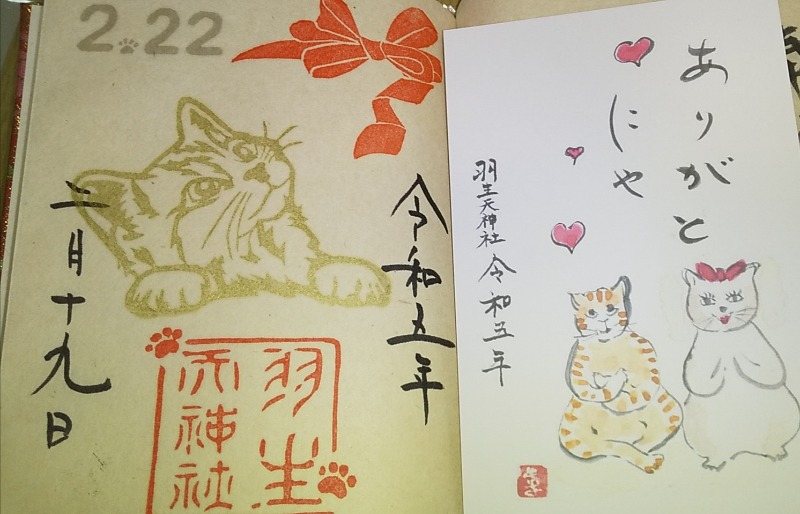 2.22
令和五年
二月十九日
羽生
天神社
ありがと
にゃ
羽生天神社 令和五年